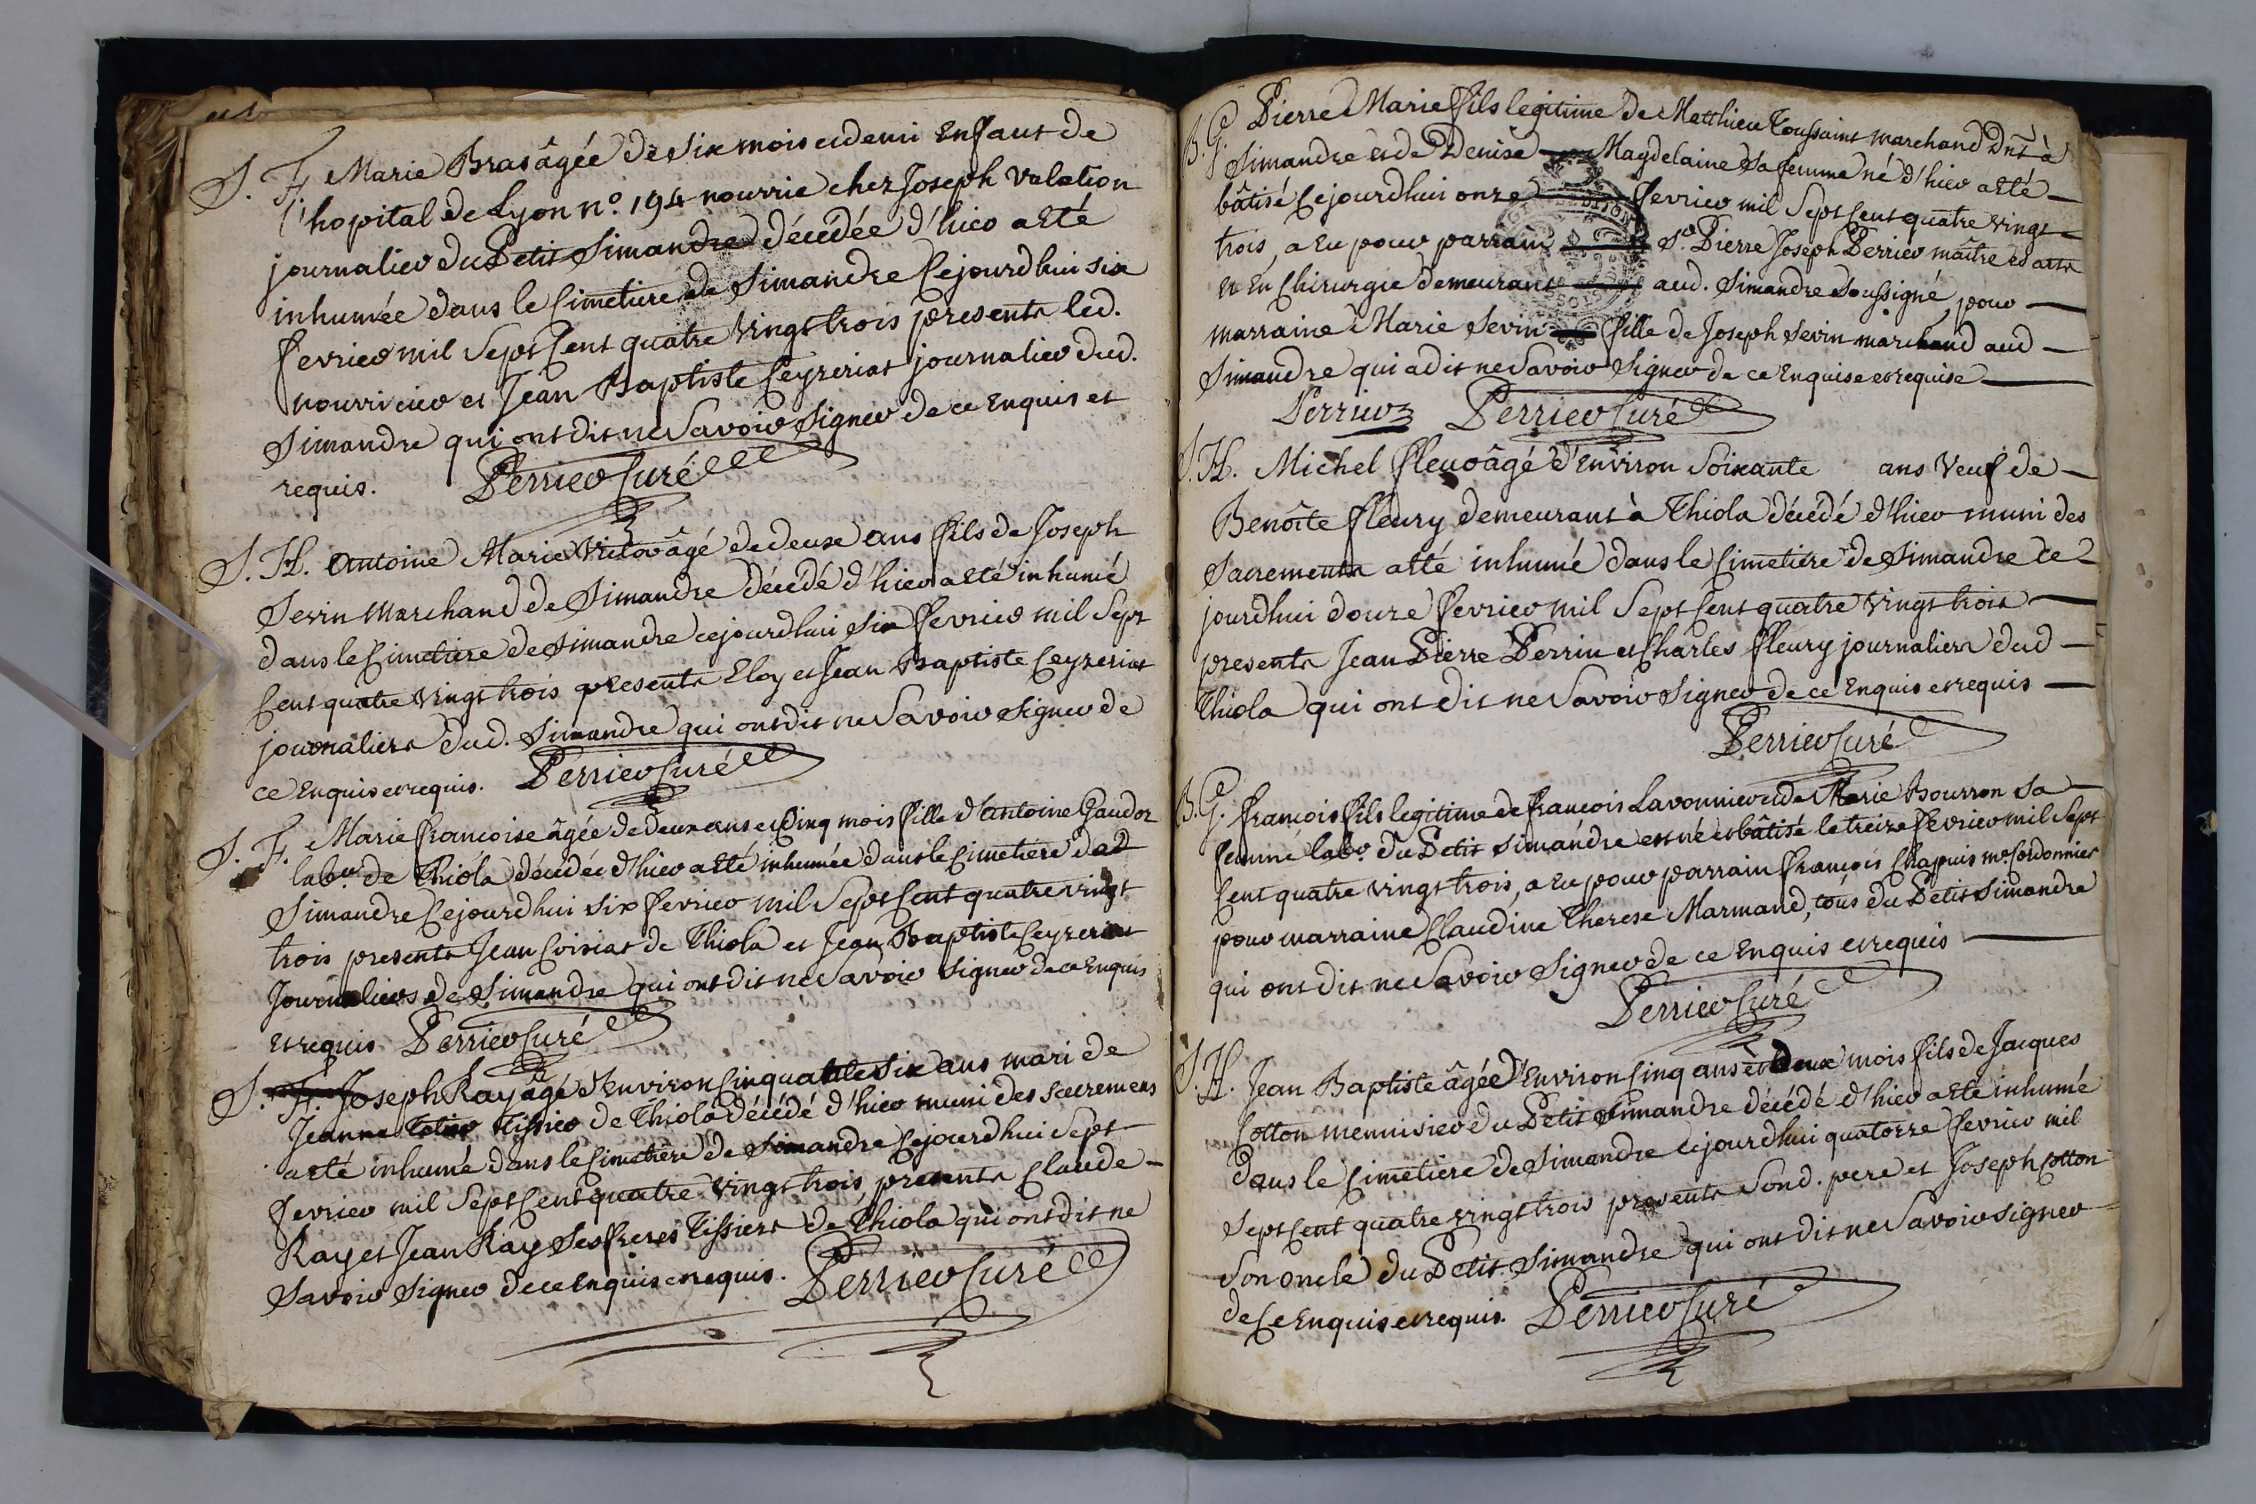 S. F. Marie Bras âgée de six mois et demi Enfant de
l'hopital de Lyon n.o 194 nourrie chez Joseph Volation
journalier du Petit Simandre décedée d'hier a eté
inhumée dans le Cimetiere de Simandre Cejourdhui six
fevrier mil Sept Cent quatre vingt trois presents led.
nourricier et Jean Baptiste Ceyzeriat journalier dud.
Simandre qui ont dit ne Savoir Signer de ce Enquis et
requis. Perrier Curé
S. H. Antoine Marie Victor âgé de deux ans fils de Joseph
Sevin Marchand de Simandre décedé d'hier a eté inhumé
dans le Cimetiere de Simandre cejourdhui Six fevrier mil Sept
Cent quatre vingt trois presents Eloy et Jean Baptiste Ceyzeriat
journaliers dud. Simandre qui ont dit ne Savoir Signer de
ce Enquis et requis. Perrier Curé
S. F. Marie francoise âgée de deux ans et Cinq mois fille d'antoine Gaudoz
lab.r de Thiola décedée d'hier a eté inhumée dans le Cimetiere de
Simandre Cejourdhui six fevrier mil Sept Cent quatre vingt
trois presents Jean Coisiat de Thiola et Jean Baptiste Ceyzeriat
Journaliers de Simandre qui ont dit ne Savoir Signer de ce Enquis
et requis Perrier Curé
S. Joseph Ray âgé d'environ Cinquante Six ans mari de
Jeanne tissier de Thiola décédé d'hier muni des sacremens
a eté inhumé dans le Cimetiere de Simandre Cejourdhui Sept
fevrier mil Sept Cent quatre vingt trois, presents Claude
Ray et Jean Ray Ses freres Tissiers de Thiola qui ont dit ne
Savoir Signer de ce Enquis et requis. Perrier Curé
B. G. Pierre Marie fils legitime de Matthieu Toussaint marchand Dnt à
Simandre et de Denise Magdelaine Sa femme né d'hier a eté
bâtisé Cejourdhui onze fevrier mil Sept Cent quatre vingt
trois, a eu pour parrain S.r Pierre Joseph Perrier maître es arts
et en Chirurgie demeurant aud. Simandre Soussigné, pour
marraine Marie Sevin fille de Joseph Sevin marchand aud
Simandre qui a dit ne Savoir Signer de ce Enquise et requise
Perrier Perrier Curé
S. H. Michel fleur âgé d'environ Soixante ans Veuf de
Benoîte fleury demeurant à Thiola décédé d'hier muni des
Sacrements a eté inhumé dans le Cimetiere de Simandre Ce
jourdhui douze fevrier mil Sept Cent quatre vingt trois
presents Jean Pierre Perrin et Charles fleury journaliers dud
Thiola qui ont dit ne Savoir Signer de ce Enquis et requis
Perrier Curé
B. G. François fils legitime de francois Lavonnier et de Marie Bourron Sa
femme lab.r du Petit Simandre est né et bâtisé le treize fevrier mil Sept
Cent quatre vingt trois, a eu pour parrain François Chapuis m.e Cordonnier
pour marraine Claudine Therese Marmand, tous du Petit Simandre
qui ont dit ne Savoir Signer de ce Enquis et requis
Perrier Curé
S. H. Jean Baptiste âgée d'environ Cinq ans et deux mois fils de Jacques
Cotton mennisier du Petit Simandre décédé d'hier a eté inhumé
dans le Cimetiere de Simandre Cejourdhui quatorze fevrier mil
Sept Cent quatre vingt trois presents Sond. pere et Joseph Cotton
Son oncle du Petit Simandre qui ont dit ne Savoir Signer
de Ce Enquis et requis. Perrier Curé